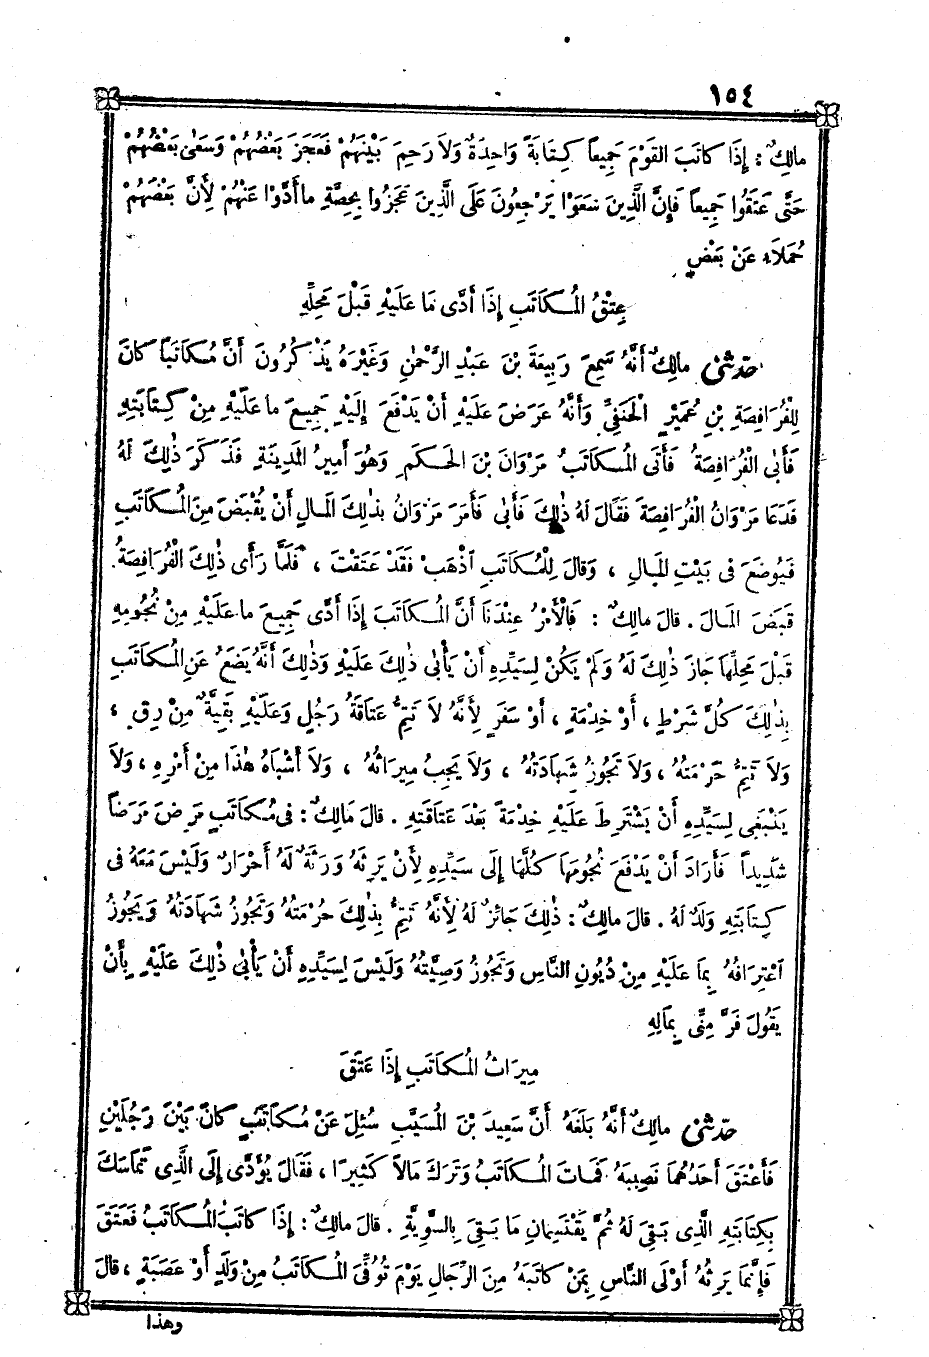 ١٥٤
مالِكٌ : إِذَا كاتَبَ القَوْمَ جَمِيعاً كِتَابَةً وَاحِدَةً وَلاَ رَحِمَ بَيْنَهُمْ فَعَجَزَ بَعْضُهُمْ وَسَعَىٰ بَعْضُهُمْ
حَتَّى عَتَقُوا جَمِيعاً فَإِنَّ الَّذِينَ سَعَوْا يَرْجِعُونَ عَلَى الَّذِينَ عَجَزُوا بِحِصَّةِ ما أَدَّوْا عَنْهُمْ لِأَنَّ بَعْضَهُمْ
حُمَلاَءُ عَنْ بَعْضٍ
عِتْقُ المُكاَتَبِ إِذَا أَدَّى مَا عَلَيْهِ قَبْلَ مَحِلِّهِ
حدثنى مالِكٌ أَنَّهُ سَمِعَ رَبِيعَةَ بْنَ عَبْدِ الرَّحْمٰنِ وَغَيْرَهُ يَذْكُرُونَ أَنَّ مُكاَتَباً كانَ
لِلْفُرَافِصَةِ بْنِ عُمَيْرٍ الْحَنَفِيِّ وَأَنَّهُ عَرَضَ عَلَيْهِ أَنْ يَدْفَعَ إِلَيْهِ جَمِيعَ ما عَلَيْهِ مِنْ كِتَابَتِهِ
فَأَبَى الْفُرَافِصَةُ فَأَتَى المُكاَتَبُ مَرْوَانَ بْنَ الحَكَمِ وَهُوَ أَمِيرُ المَدِينَةِ فَذَكَرَ ذٰلِكَ لَهُ
فَدَعَا مَرْوَانُ الْفُرَافِصَةَ فَقَالَ لَهُ ذٰلِكَ فَأَبَى فَأَمَرَ مَرْوَانُ بذٰلِكَ المَالِ أَنْ يُقْبَضَ مِنَ المُكاَتَبِ
فَيُوضَعَ فى بَيْتِ المَالِ ، وَقالَ لِلْمُكاَتَبِ اَذْهَبْ فَقَدْ عَتَقْتَ ، فَلَمَّا رَأَى ذٰلِكَ الْفُرَافِصَةُ
قَبَضَ المَالَ . قالَ مالِكٌ : فَالْأَمْرُ عِنْدَنَا أَنَّ المُكاَتَبَ إِذَا أَدَّى جَمِيعَ ما عَلَيْهِ مِنْ نُجُومِهِ
قَبْلَ مَحِلِّهَا جَازَ ذٰلِكَ لَهُ وَلَمْ يَكُنْ لِسَيِّدِهِ أَنْ يَأْبَى ذٰلِكَ عَلَيْهِ وَذٰلِكَ أَنَّهُ يَضَعُ عَنِ المُكاَتَبِ
بِذٰلِكَ كُلَّ شَرْطٍ ، أَوْ خِدْمَةٍ ، أَوْ سَفَرٍ لِأَنَّهُ لاَ تَتِمُّ عَتَاقَةُ رَجُلٍ وَعَلَيْهِ بَقِيَّةٌ مِنْ رِقٍّ ،
وَلاَ تَتِمُّ حُرْمَتُهُ ، وَلاَ تَجُوزُ شَهَادَتُهُ ، وَلاَ يَجِبُ مِيرَاثُهُ ، وَلاَ أَشْبَاهُ هٰذَا مِنْ أَمْرِهِ ، وَلاَ
يَنْبَغِى لِسَيِّدِهِ أَنْ يَشْتَرِطَ عَلَيْهِ خِدْمَةً بَعْدَ عَتَاقَتِهِ . قالَ مَالِكٌ : فى مُكاَتَبٍ مَرِضَ مَرَضاً
شَدِيداً فَأَرَادَ أَنْ يَدْفَعَ نُجُومَهَا كُلَّهَا إِلَى سَيِّدِهِ لِأَنْ يَرِثَهُ وَرَثَةٌ لَهُ أَحْرَارٌ وَلَيْسَ مَعَهُ فى
كِتَابَتِهِ وَلَدٌ لَهُ . قالَ مالِكٌ : ذٰلِكَ جَائِزٌ لَهُ لِأَنَّهُ تَتِمُّ بِذٰلِكَ حُرْمَتُهُ وَتَجُوزُ شَهَادَتُهُ وَيَجُوزُ
اَعْتِرَافُهُ بِمَا عَلَيْهِ مِنْ دُيُونِ النَّاسِ وَتَجُوزُ وَصِيَّتُهُ وَلَيْسَ لِسَيِّدِهِ أَنْ يَأْبَى ذٰلِكَ عَلَيْهِ بِأَنْ
يَقُولَ فَرَّ مِنِّى بِمَالِهِ
مِيرَاثُ المُكاَتَبِ إِذَا عَتَقَ
حدثنى مالِكٌ أَنَّهُ بَلَغَهُ أَنَّ سَعِيدَ بْنَ المُسَيَّبِ سُئِلَ عَنْ مُكاَتَبٍ كانَ بَيْنَ رَجُلَيْنِ
فَأَعْتَقَ أَحَدُهُمَا نَصِيبَهُ فَمَاتَ المُكاَتَبُ وَتَرَكَ مَالاً كَثِيرًا ، فَقَالَ يُؤَدَّى إِلَى الَّذِى تَمَاسَكَ
بِكِتَابَتِهِ الَّذِى بَقِىَ لَهُ ثُمَّ يَقْتَسِمَانِ مَا بَقِىَ بِالسَّوِيَّةِ . قالَ مالِكٌ : إِذَا كاتَبَ المُكاَتَبُ فَعَتَقَ
فَإِنَّمَا يَرِثُهُ أَوْلَى النَّاسِ بِمَنْ كاتَبَهُ مِنَ الرِّجَالِ يَوْمَ تُوُفِّىَ المُكاَتَبُ مِنْ وَلَدٍ أَوْ عَصَبَةٍ ، قالَ
وهذا